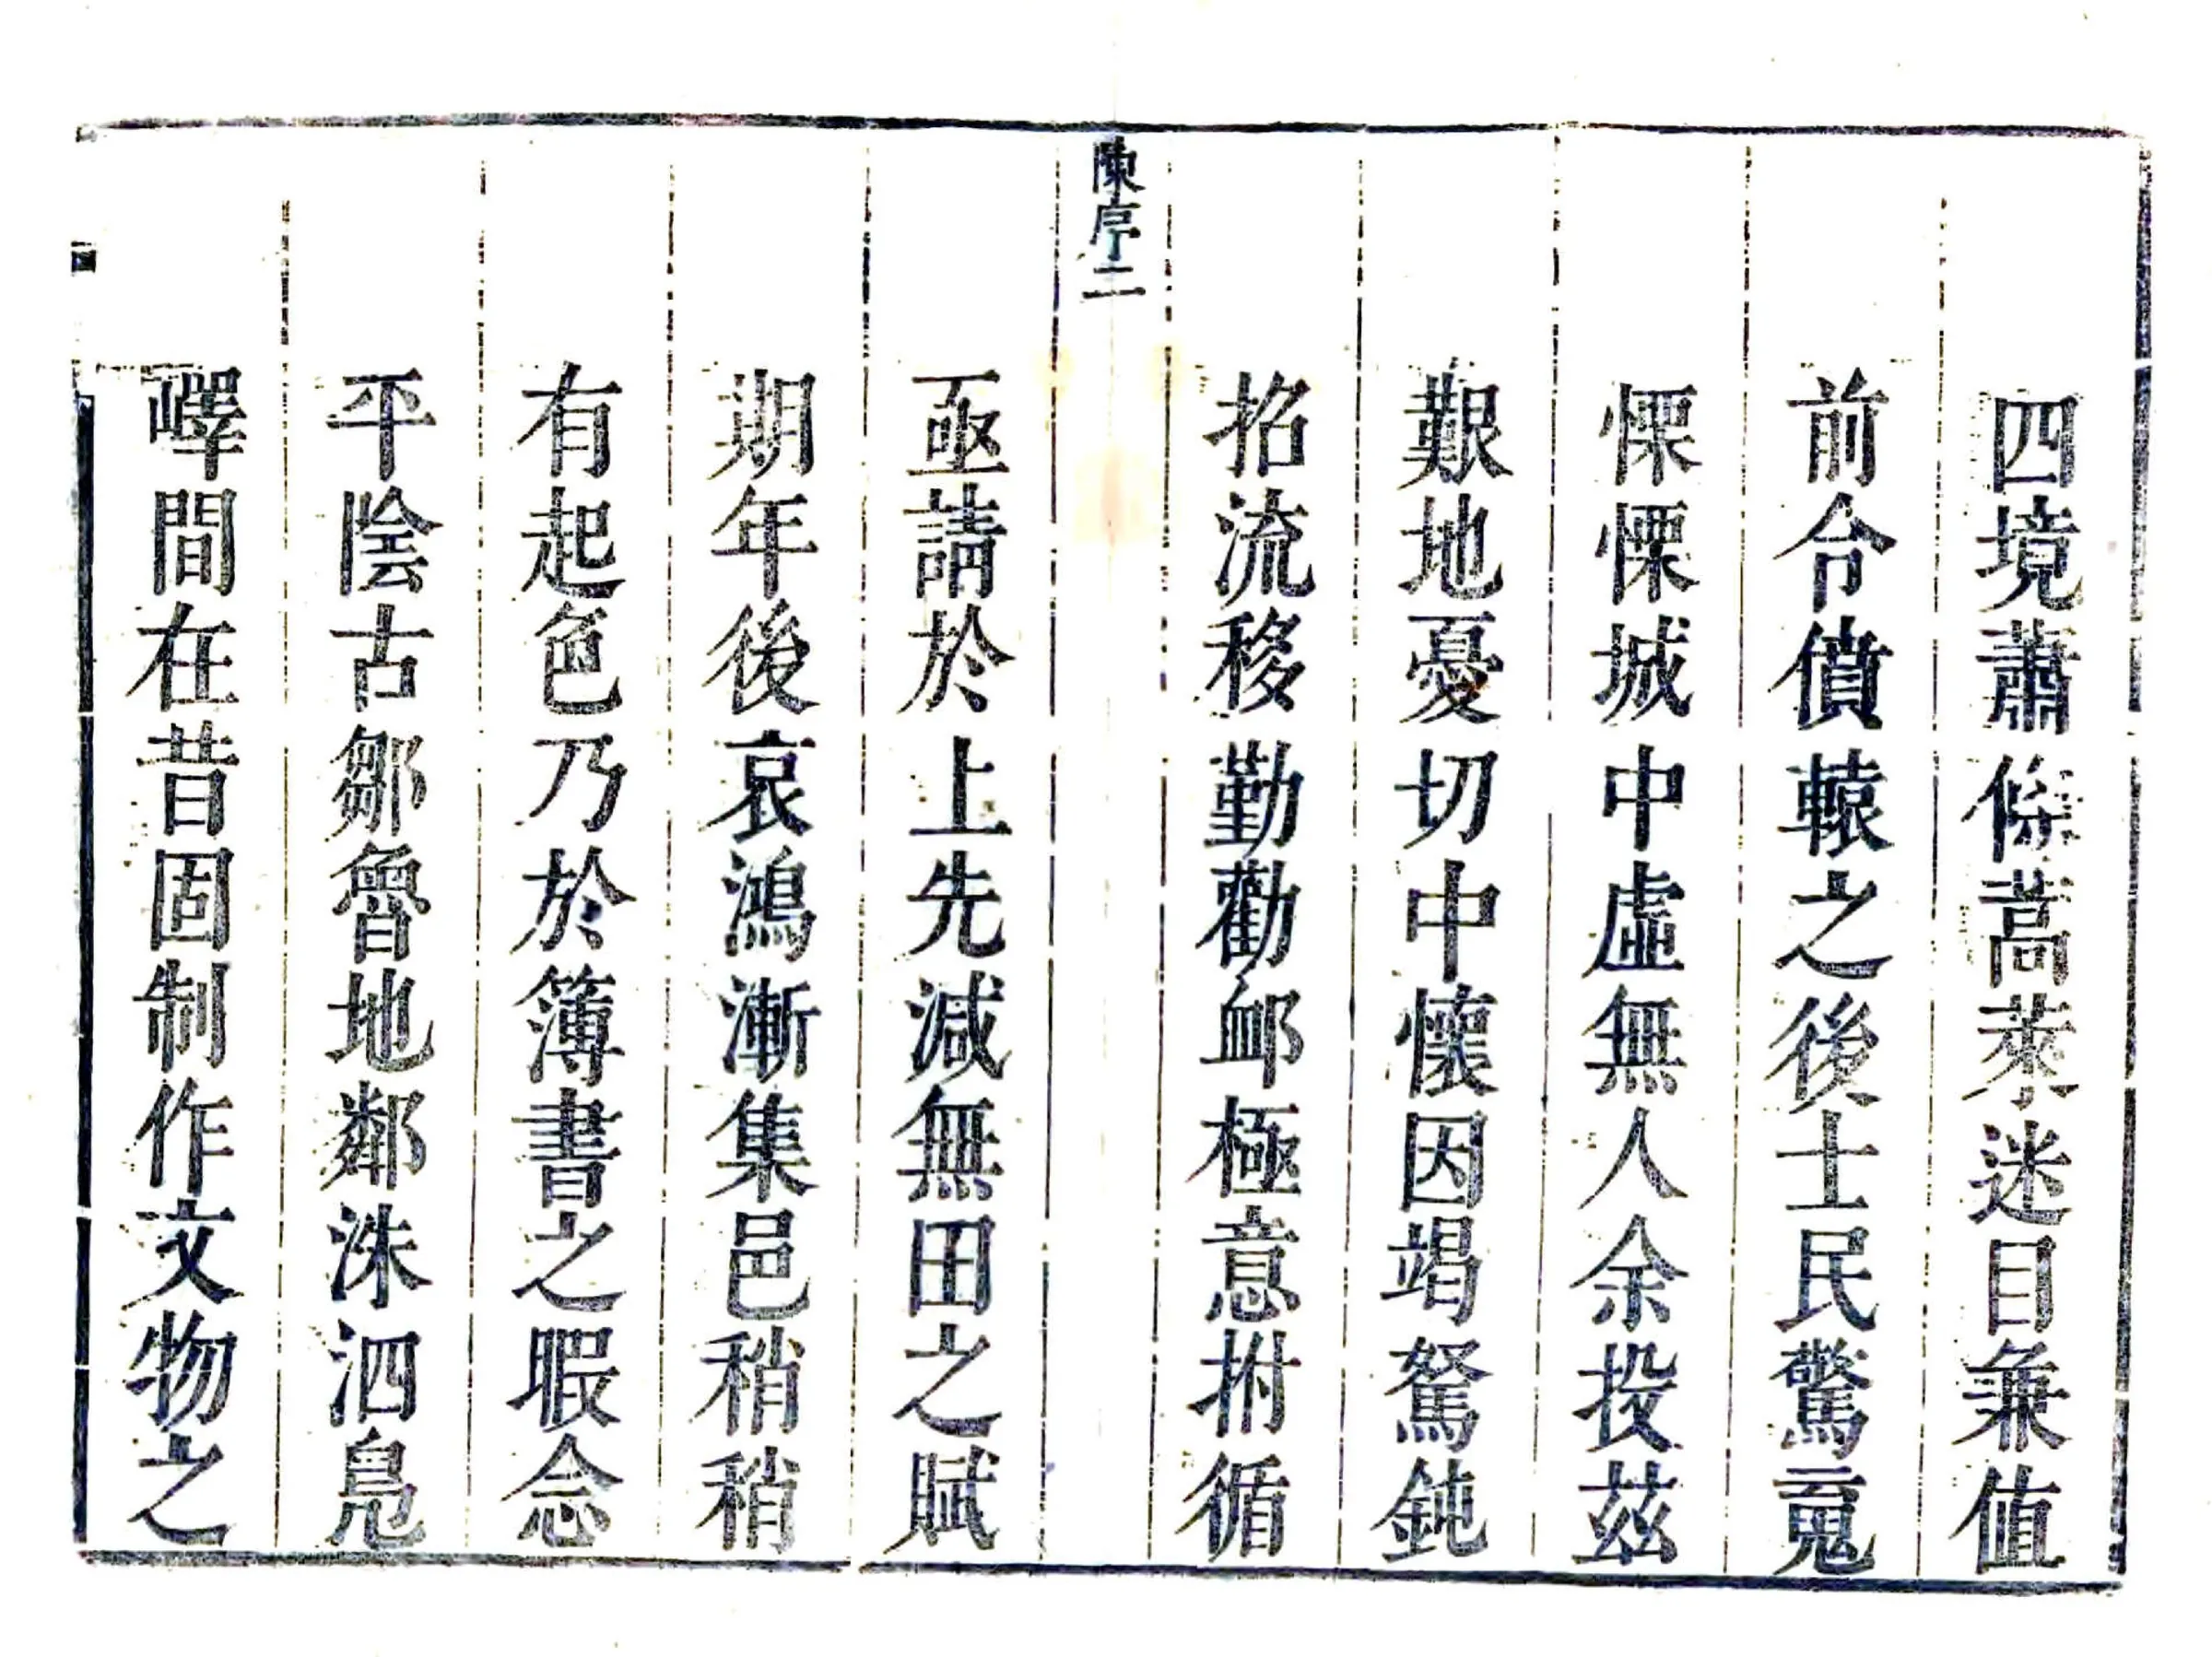 四境蕭條蒿萊迷目兼值
前令僨轅之後士民驚䰟
慄慄城中虛無人余投茲
艱地憂切中懷因竭駑鈍
招流移勤勸䘏極意拊循
亟請於上先減無田之賦
期年後哀鴻漸集邑稍稍
有起色乃於簿書之暇念
平陰古鄒魯地鄰洙泗鳧
嶧間在昔固制作文物之
陳序二